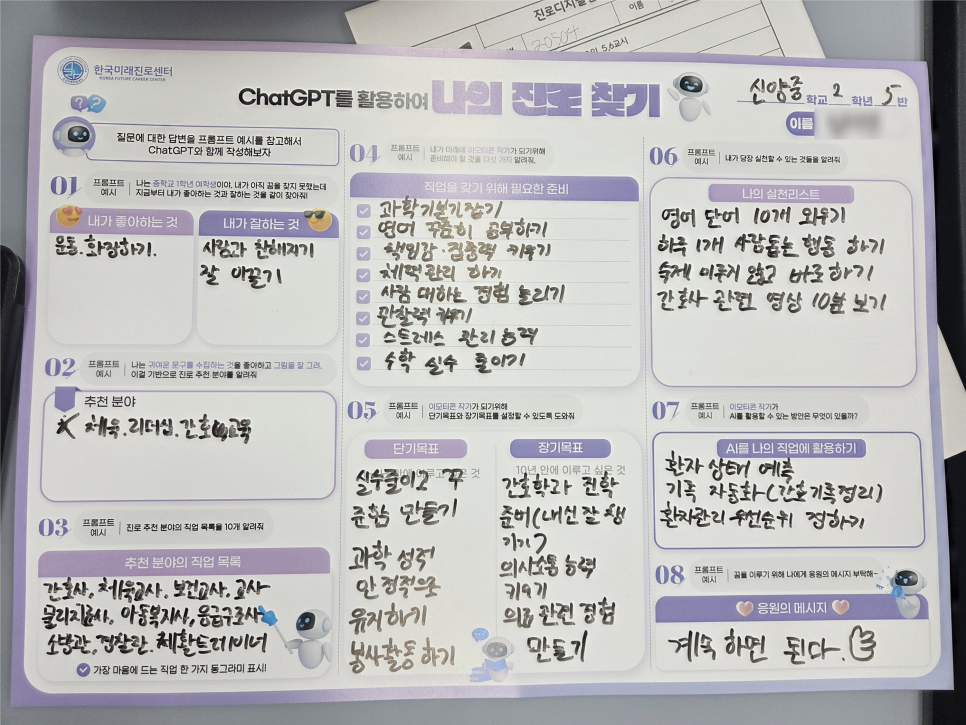 진로디지털
이름
20504
5,6교시
한국미래진로센터
KOREA FUTURE CAREER CENTER
ChatGPT를 활용하여 나의 진로 찾기
신양중 학교 2 학년 5 반
이름
질문에 대한 답변을 프롬프트 예시를 참고해서
ChatGPT와 함께 작성해보자
01 프롬프트 예시
나는 중학교 1학년 여학생이야, 내가 아직 꿈을 찾지 못했는데
지금부터 내가 좋아하는 것과 잘하는 것을 같이 찾아줘!
내가 좋아하는 것
운동. 화장하기.
내가 잘하는 것
사람과 친해지기
잘 이끌기
02 프롬프트 예시
나는 귀여운 문구를 수집하는 것을 좋아하고 그림을 잘 그려.
이걸 기반으로 진로 추천 분야를 알려줘
추천 분야
체육. 리더십. 간호 교육
03 프롬프트 예시
진로 추천 분야의 직업 목록을 10개 알려줘
추천 분야의 직업 목록
간호사, 체육교사, 보건교사, 교사
물리치료사, 아동복지사, 응급구조사
소방관, 경찰관, 체활트레이너
가장 마음에 드는 직업 한 가지 동그라미 표시!
04 프롬프트 예시
내가 미래에 이모티콘 작가가 되기위해
준비해야 할 것을 다섯 가지 알려줘.
직업을 갖기 위해 필요한 준비
과학기본기잡기
영어 꾸준히 공부하기
책임감·집중력 키우기
체력관리 하기
사람 대하는 경험 늘리기
관찰력 키우기
스트레스 관리 능력
수학 실수 줄이기
05 프롬프트 예시
이모티콘 작가가 되기위해
단기목표와 장기목표를 설정할 수 있도록 도와줘
단기목표
실수줄이고 꾸
준함 만들기
과학 성적
안정적으로
유지하기
봉사활동 하기
장기목표
10년 안에 이루고 싶은 것
간호학과 진학
준비(내신 잘 챙
기기)
의사소통 능력
키우기
의료 관련 경험
만들기
06 프롬프트 예시
내가 당장 실천할 수 있는 것들을 알려줘
나의 실천리스트
영어 단어 10개 외우기
하루 1개 사람돕는 행동 하기
숙제 미루지 않고 바로 하기
간호사 관련 영상 10분 보기
07 프롬프트 예시
이모티콘 작가가
AI를 활용할 수 있는 방안은 무엇이 있을까?
AI를 나의 직업에 활용하기
환자 상태 예측
기록 자동화-(간호기록정리)
환자관리 우선순위 정하기
08 프롬프트 예시
꿈을 이루기 위해 나에게 응원의 메시지 부탁해~
응원의 메시지
계속 하면 된다.